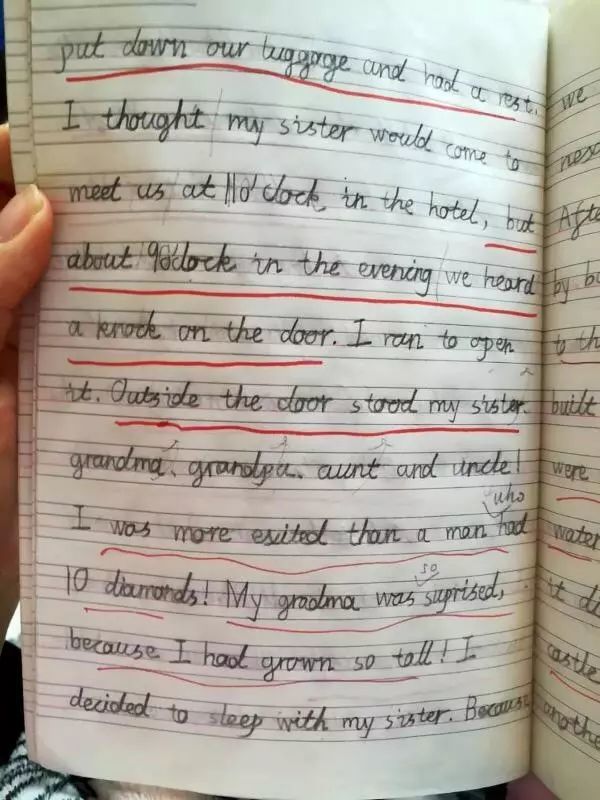 put down our luggage and had a rest.
I thought my sister would come to
meet us at 11o'clock in the hotel, but
about 9o'clock in the evening we heard
a knock on the door. I ran to open
it. Outside the door stood my sister.
grandma、grandpa、aunt and uncle!
who
I was more exited than a man had
so
10 diamonds! My gradma was suprised,
because I had grown so tall! I
decided to sleep with my sister. Because
we
Afte
by bu
to th
built
were
water
it di
castle
anothe